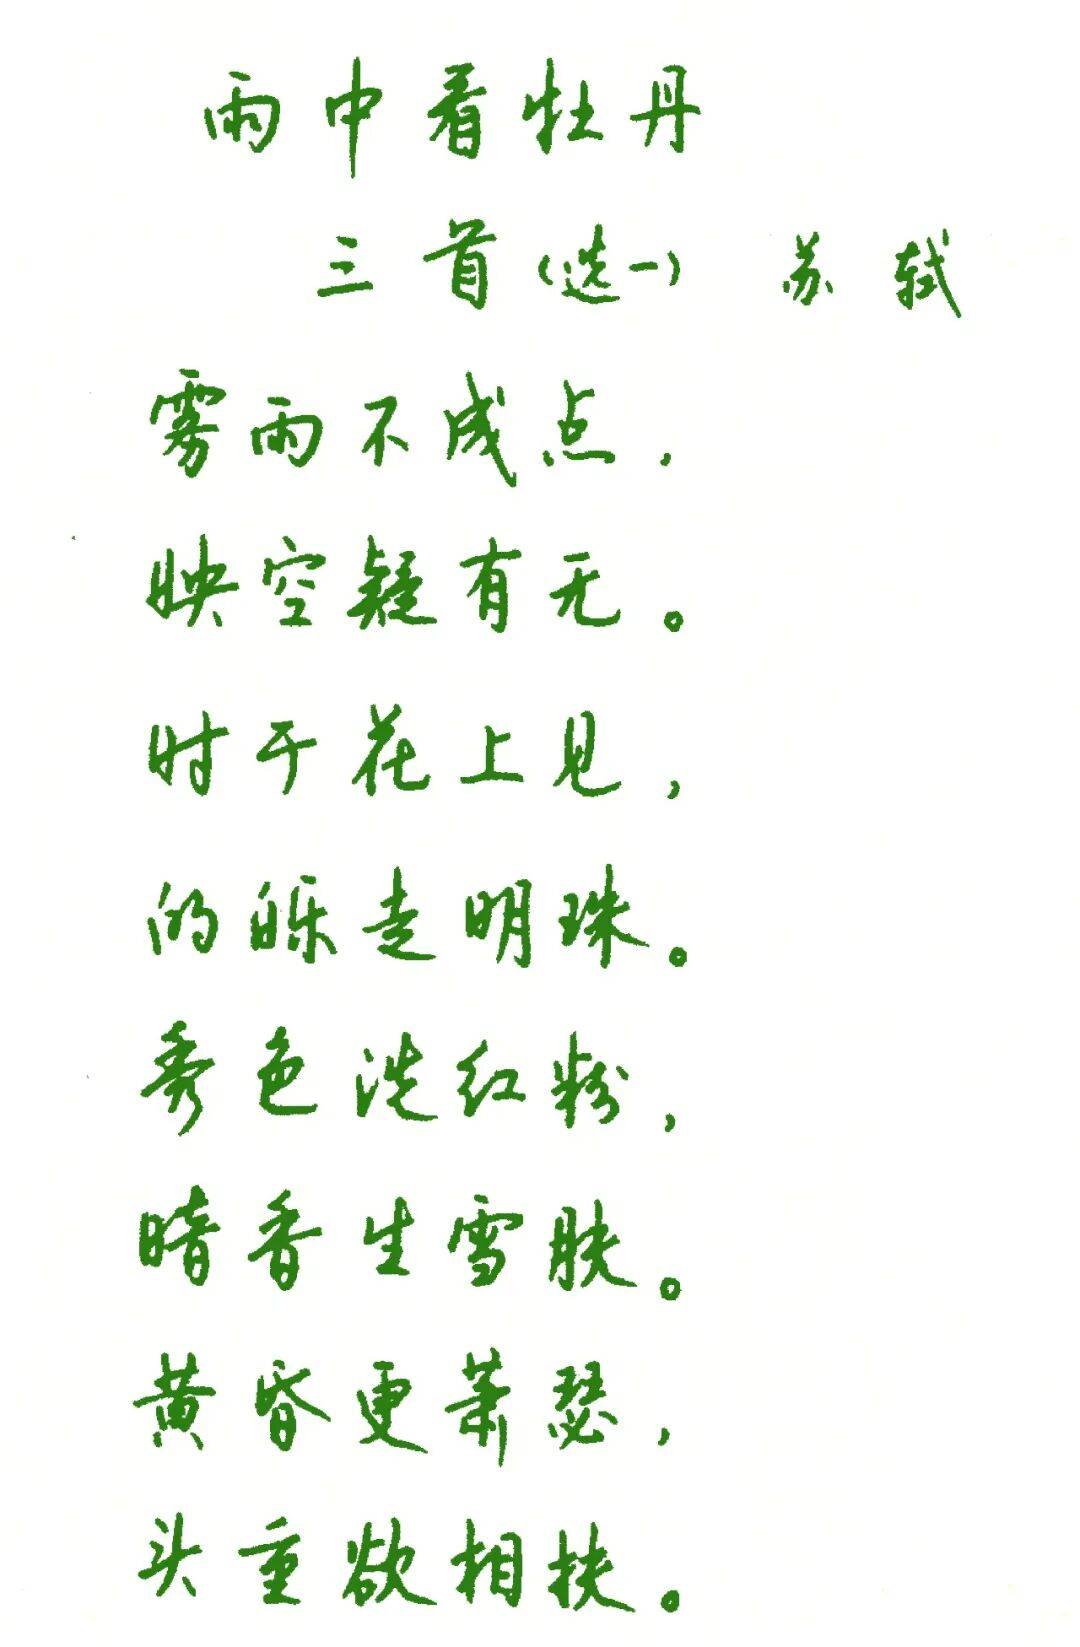 雨中看牡丹
三首(选一) 苏轼
雾雨不成点,
映空疑有无。
时于花上见,
的皪走明珠。
秀色洗红粉,
暗香生雪肤。
黄昏更萧瑟,
头重欲相扶。